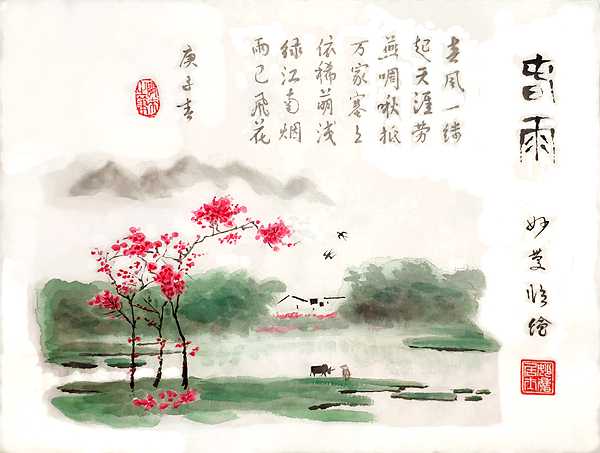 春雨
春风一缕
起天涯劳
燕啁啾抵
万家塞上
依稀萌浅
绿江南烟
雨已飞花
庚子春
妙临绘